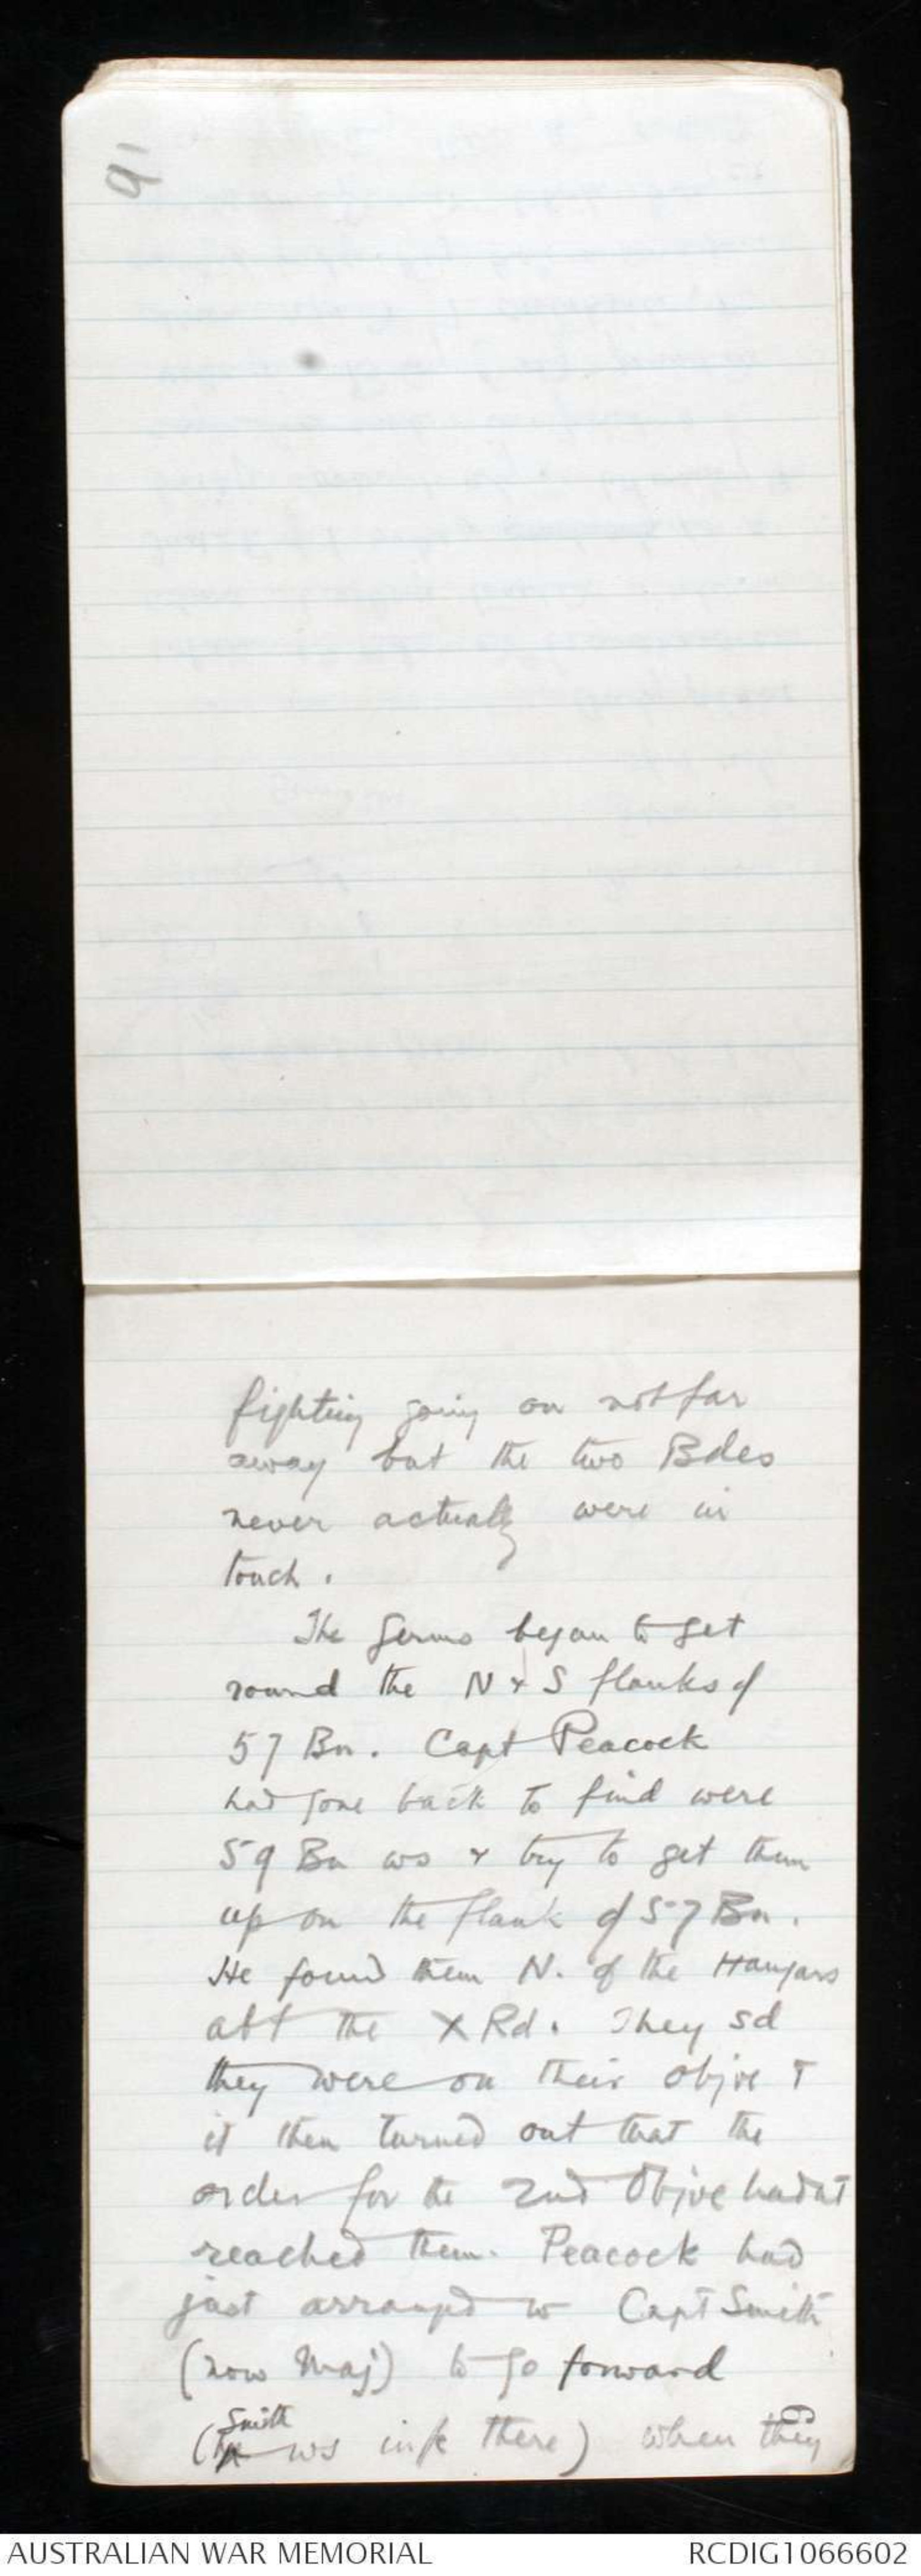 91
fighting going on not far
away but the two Bdes
never actually were in
touch.
The Germs began to get
round the N & S flanks of
57 Bn. Capt Peacock
had gone back to find were
59 Bn ws & try to get them
up on the flank of 57 Bn.
He found them N. of the Hangars
abt the X Rd. They sd
they were on their objve &
it then turned out that the
order for the 2nd Objve hadnt
reached them. Peacock had
just arranged w Capt Smith
(now Maj) to go forward
Smith
( ws in there) when they
AUSTRALIAN WAR MEMORIAL
RCDIG1066602